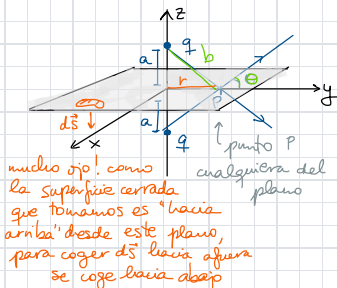 z
q
b
a
r
θ
P
y
a
ds
x
q
punto P
cualquiera del
plano
mucho ojo! como
la superficie cerrada
que tomamos es "hacia
arriba" desde este plano,
para coger ds hacia afuera
se coge hacia abajo